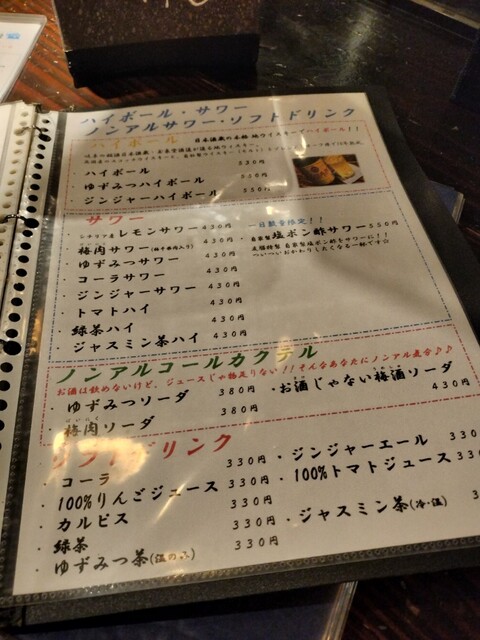 ハイボール・サワー
ノンアルサワー・ソフトドリンク
ハイボール 日本酒蔵の本格・地ウイスキーでハイボール!!
・ハイボール 530円
・ゆずみつハイボール 550円
・ジンジャーハイボール 550円
サワー
・レモンサワー 430円
・梅肉サワー(梅干果肉入り) 430円
・ゆずみつサワー 430円
・コーラサワー 430円
・ジンジャーサワー 430円
・トマトハイ 430円
・緑茶ハイ 430円
・ジャスミン茶ハイ 430円
一日数量限定!!
自家製 塩ポン酢サワー 550円
自家製塩ポン酢をサワーに!!
ついついおかわりしたくなる一杯です☆
ノンアルコールカクテル
お酒は飲めないけど、ジュースじゃ物足りない!!そんなあなたにノンアル度合♪♪
・ゆずみつソーダ 380円
・梅肉ソーダ 380円
・お酒じゃない梅酒ソーダ 430円
ソフトドリンク
・コーラ 330円
・100%りんごジュース 330円
・カルピス 330円
・緑茶 330円
・ゆずみつ茶 330円
・ジンジャーエール 330
・100%トマトジュース 330
・ジャスミン茶(冷・温)